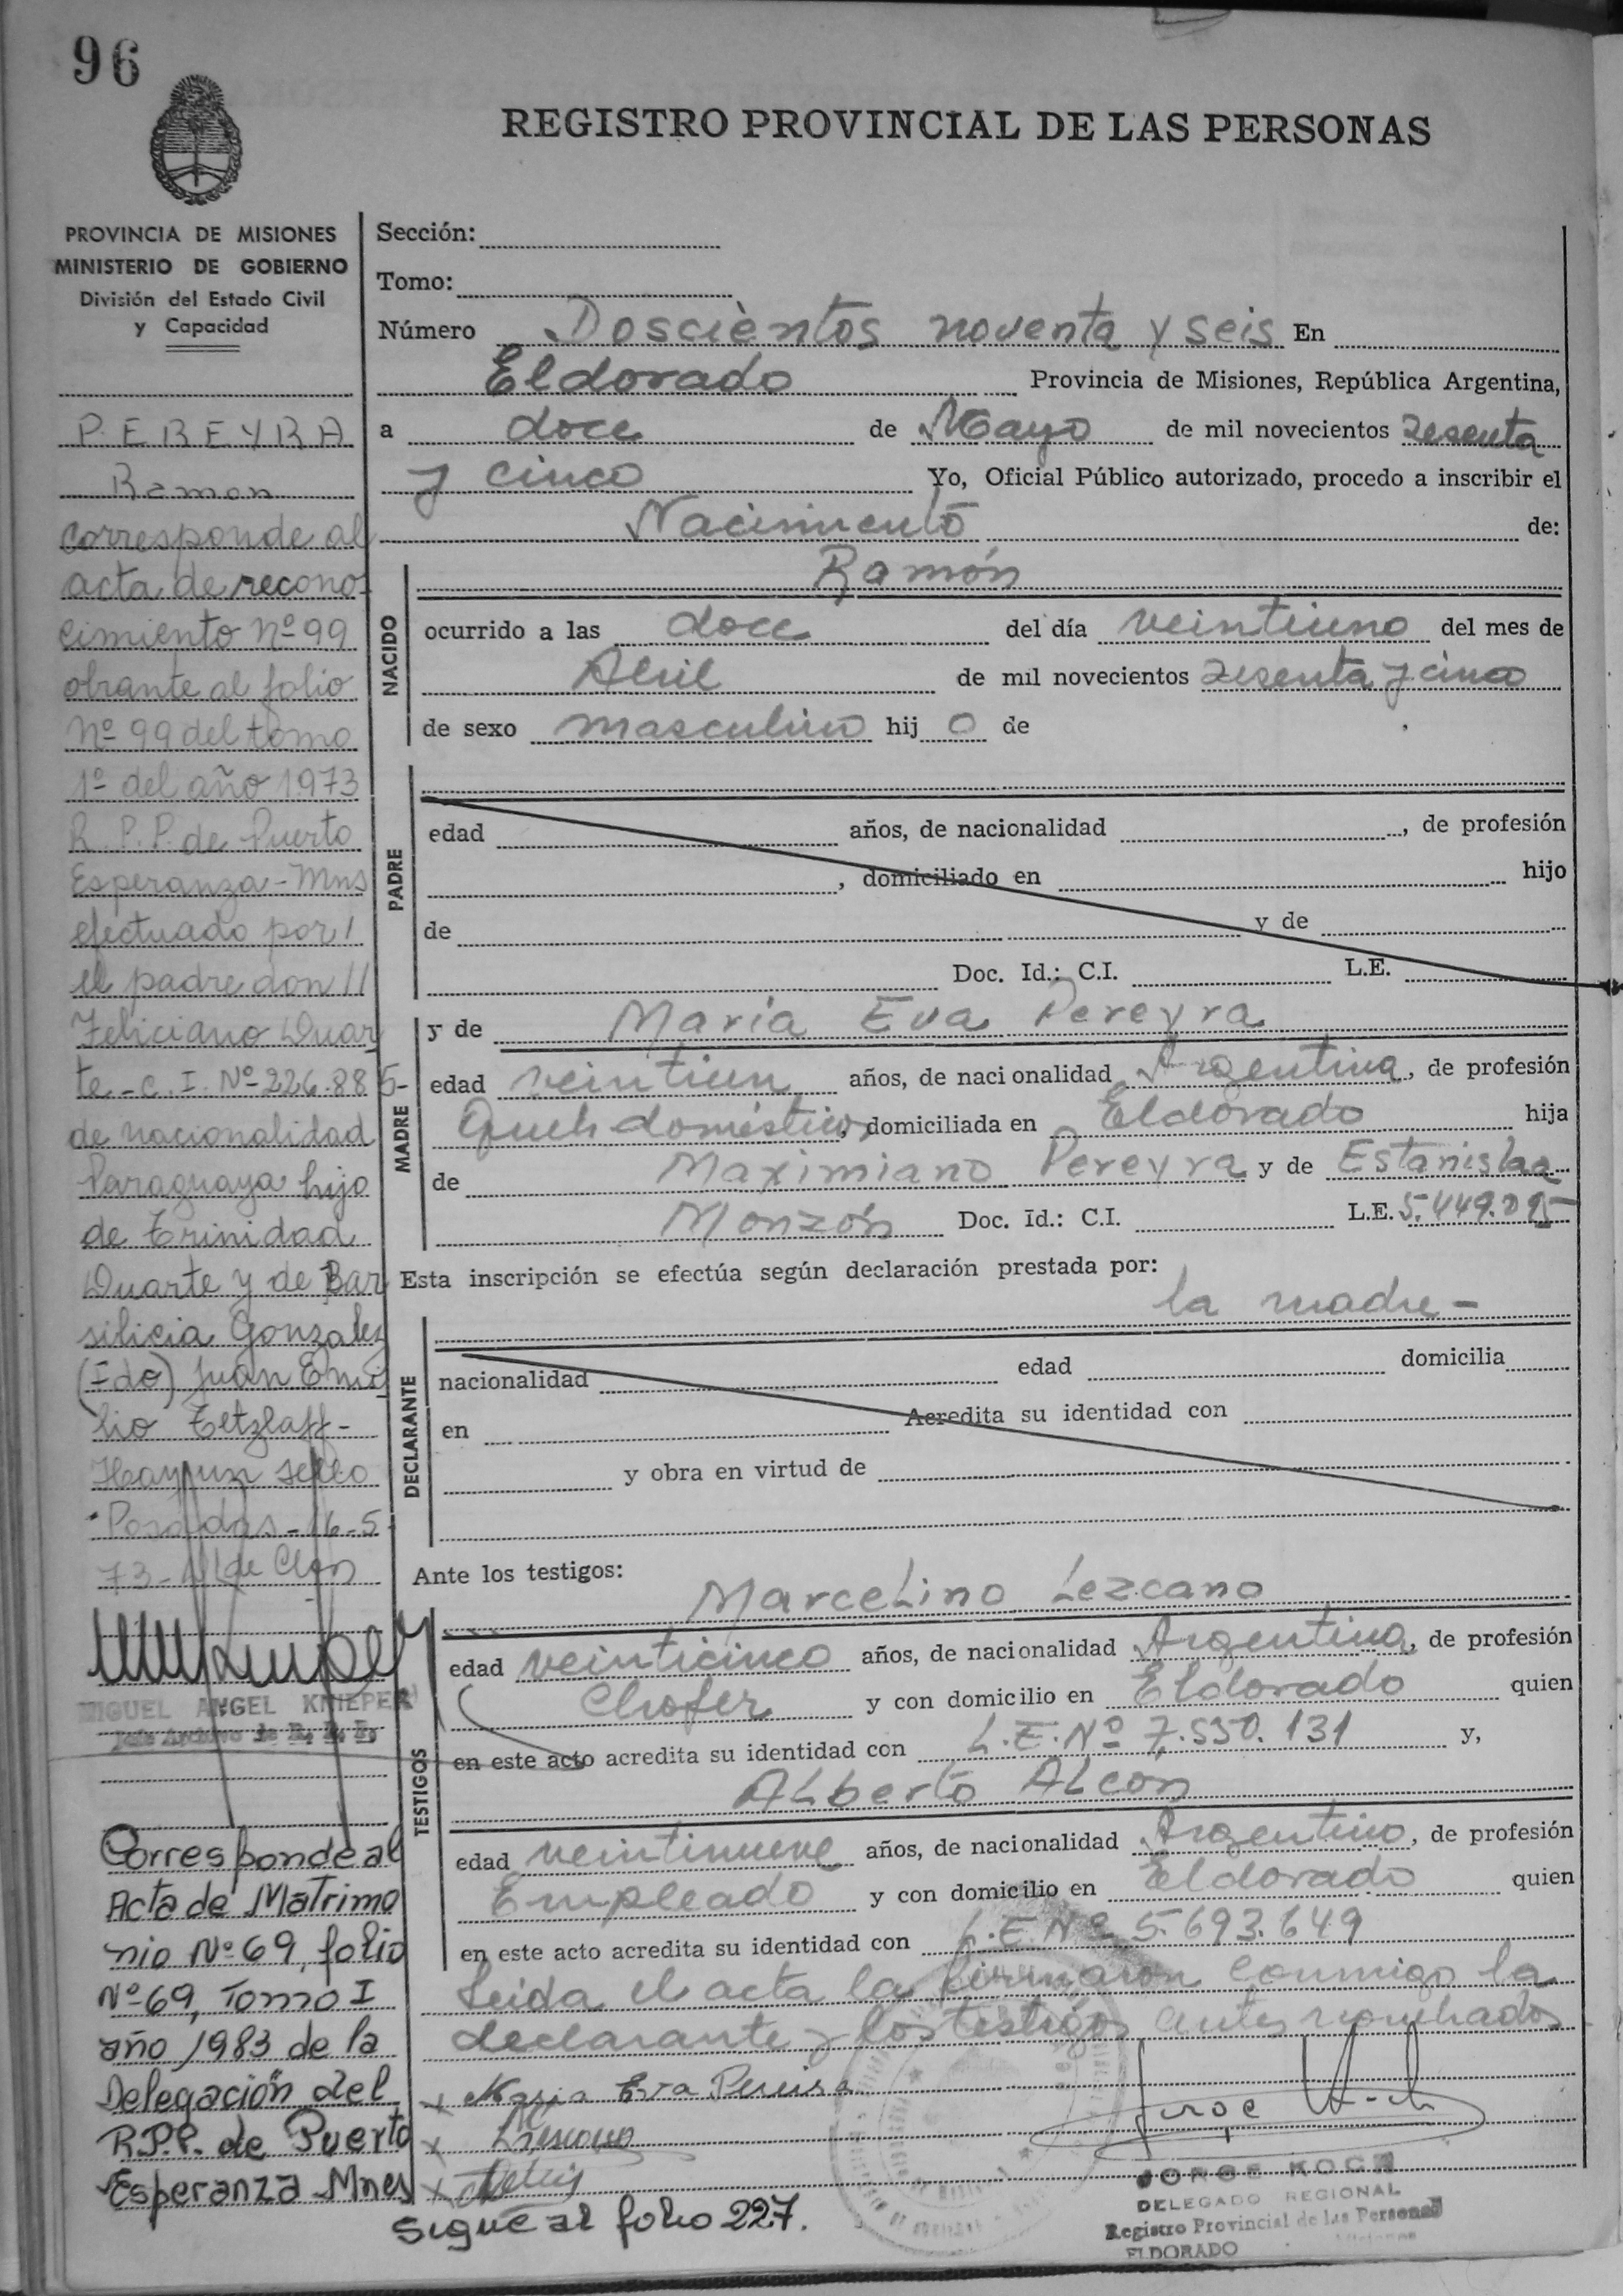 96
REGISTRO PROVINCIAL DE LAS PERSONAS
PROVINCIA DE MISIONES
MINISTERIO DE GOBIERNO
División del Estado Civil
y Capacidad
PEREYRA
Ramon
corresponde al
acta de recono-
cimiento nº 99
obrante al folio
nº 99 del tomo
1º del año 1973
R.P.P. de Puerto
Esperanza - Mns
efectuado por /
el padre don //
Feliciano Duar
te - C.I. Nº 226.885-
de nacionalidad
Paraguaya hijo
de Trinidad
Duarte y de Bar
silicia Gonzalez
(Fdo) Juan Emi
lio Tetzlaff -
Hay un sello
Posadas - 16-5-
73 -
MIGUEL ANGEL KNIEPER
Jefe Archivo de R. P. P.
Corresponde al
Acta de Matrimo
nio Nº 69, folio
Nº 69, Tomo I
año 1983 de la
Delegación del
R.P.P. de Puerto
Esperanza Mnes
Sección:
Tomo:
Número Doscientos noventa y seis En
Eldorado Provincia de Misiones, República Argentina,
a doce de Mayo de mil novecientos sesenta
y cinco Yo, Oficial Público autorizado, procedo a inscribir el
Nacimiento de:
Ramón
NACIDO
ocurrido a las doce del día veintiuno del mes de
Abril de mil novecientos sesenta y cinco
de sexo masculino hij o de
PADRE
edad años, de nacionalidad , de profesión
, domiciliado en hijo
de y de
Doc. Id.: C.I. L.E.
MADRE
y de Maria Eva Pereyra
edad veintiun años, de nacionalidad Argentina, de profesión
Queh domésticos, domiciliada en Eldorado hija
de Maximiano Pereyra y de Estanislaa
Monzón Doc. Id.: C.I. L.E. 5.449.095
Esta inscripción se efectúa según declaración prestada por:
la madre -
DECLARANTE
nacionalidad edad domicilia
en Acredita su identidad con
y obra en virtud de
Ante los testigos:
Marcelino Lezcano
TESTIGOS
edad veinticinco años, de nacionalidad Argentina, de profesión
Chofer y con domicilio en Eldorado quien
en este acto acredita su identidad con L.E. Nº 7.550.131 y,
Alberto Alcon
edad veintinueve años, de nacionalidad Argentino, de profesión
Empleado y con domicilio en Eldorado quien
en este acto acredita su identidad con L.E. Nº 5.693.649
Leida el acta la firmaron conmigo la
declarante y los testigos antes nombrados
x Maria Eva Pereira
x
x
Jorge Koch
JORGE KOCH
DELEGADO REGIONAL
Registro Provincial de las Personas
ELDORADO
Sigue al folio 227.